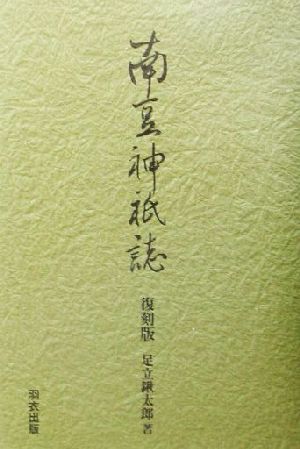 南豆神祇誌
復刻版 足立鍬太郎 著
羽衣出版